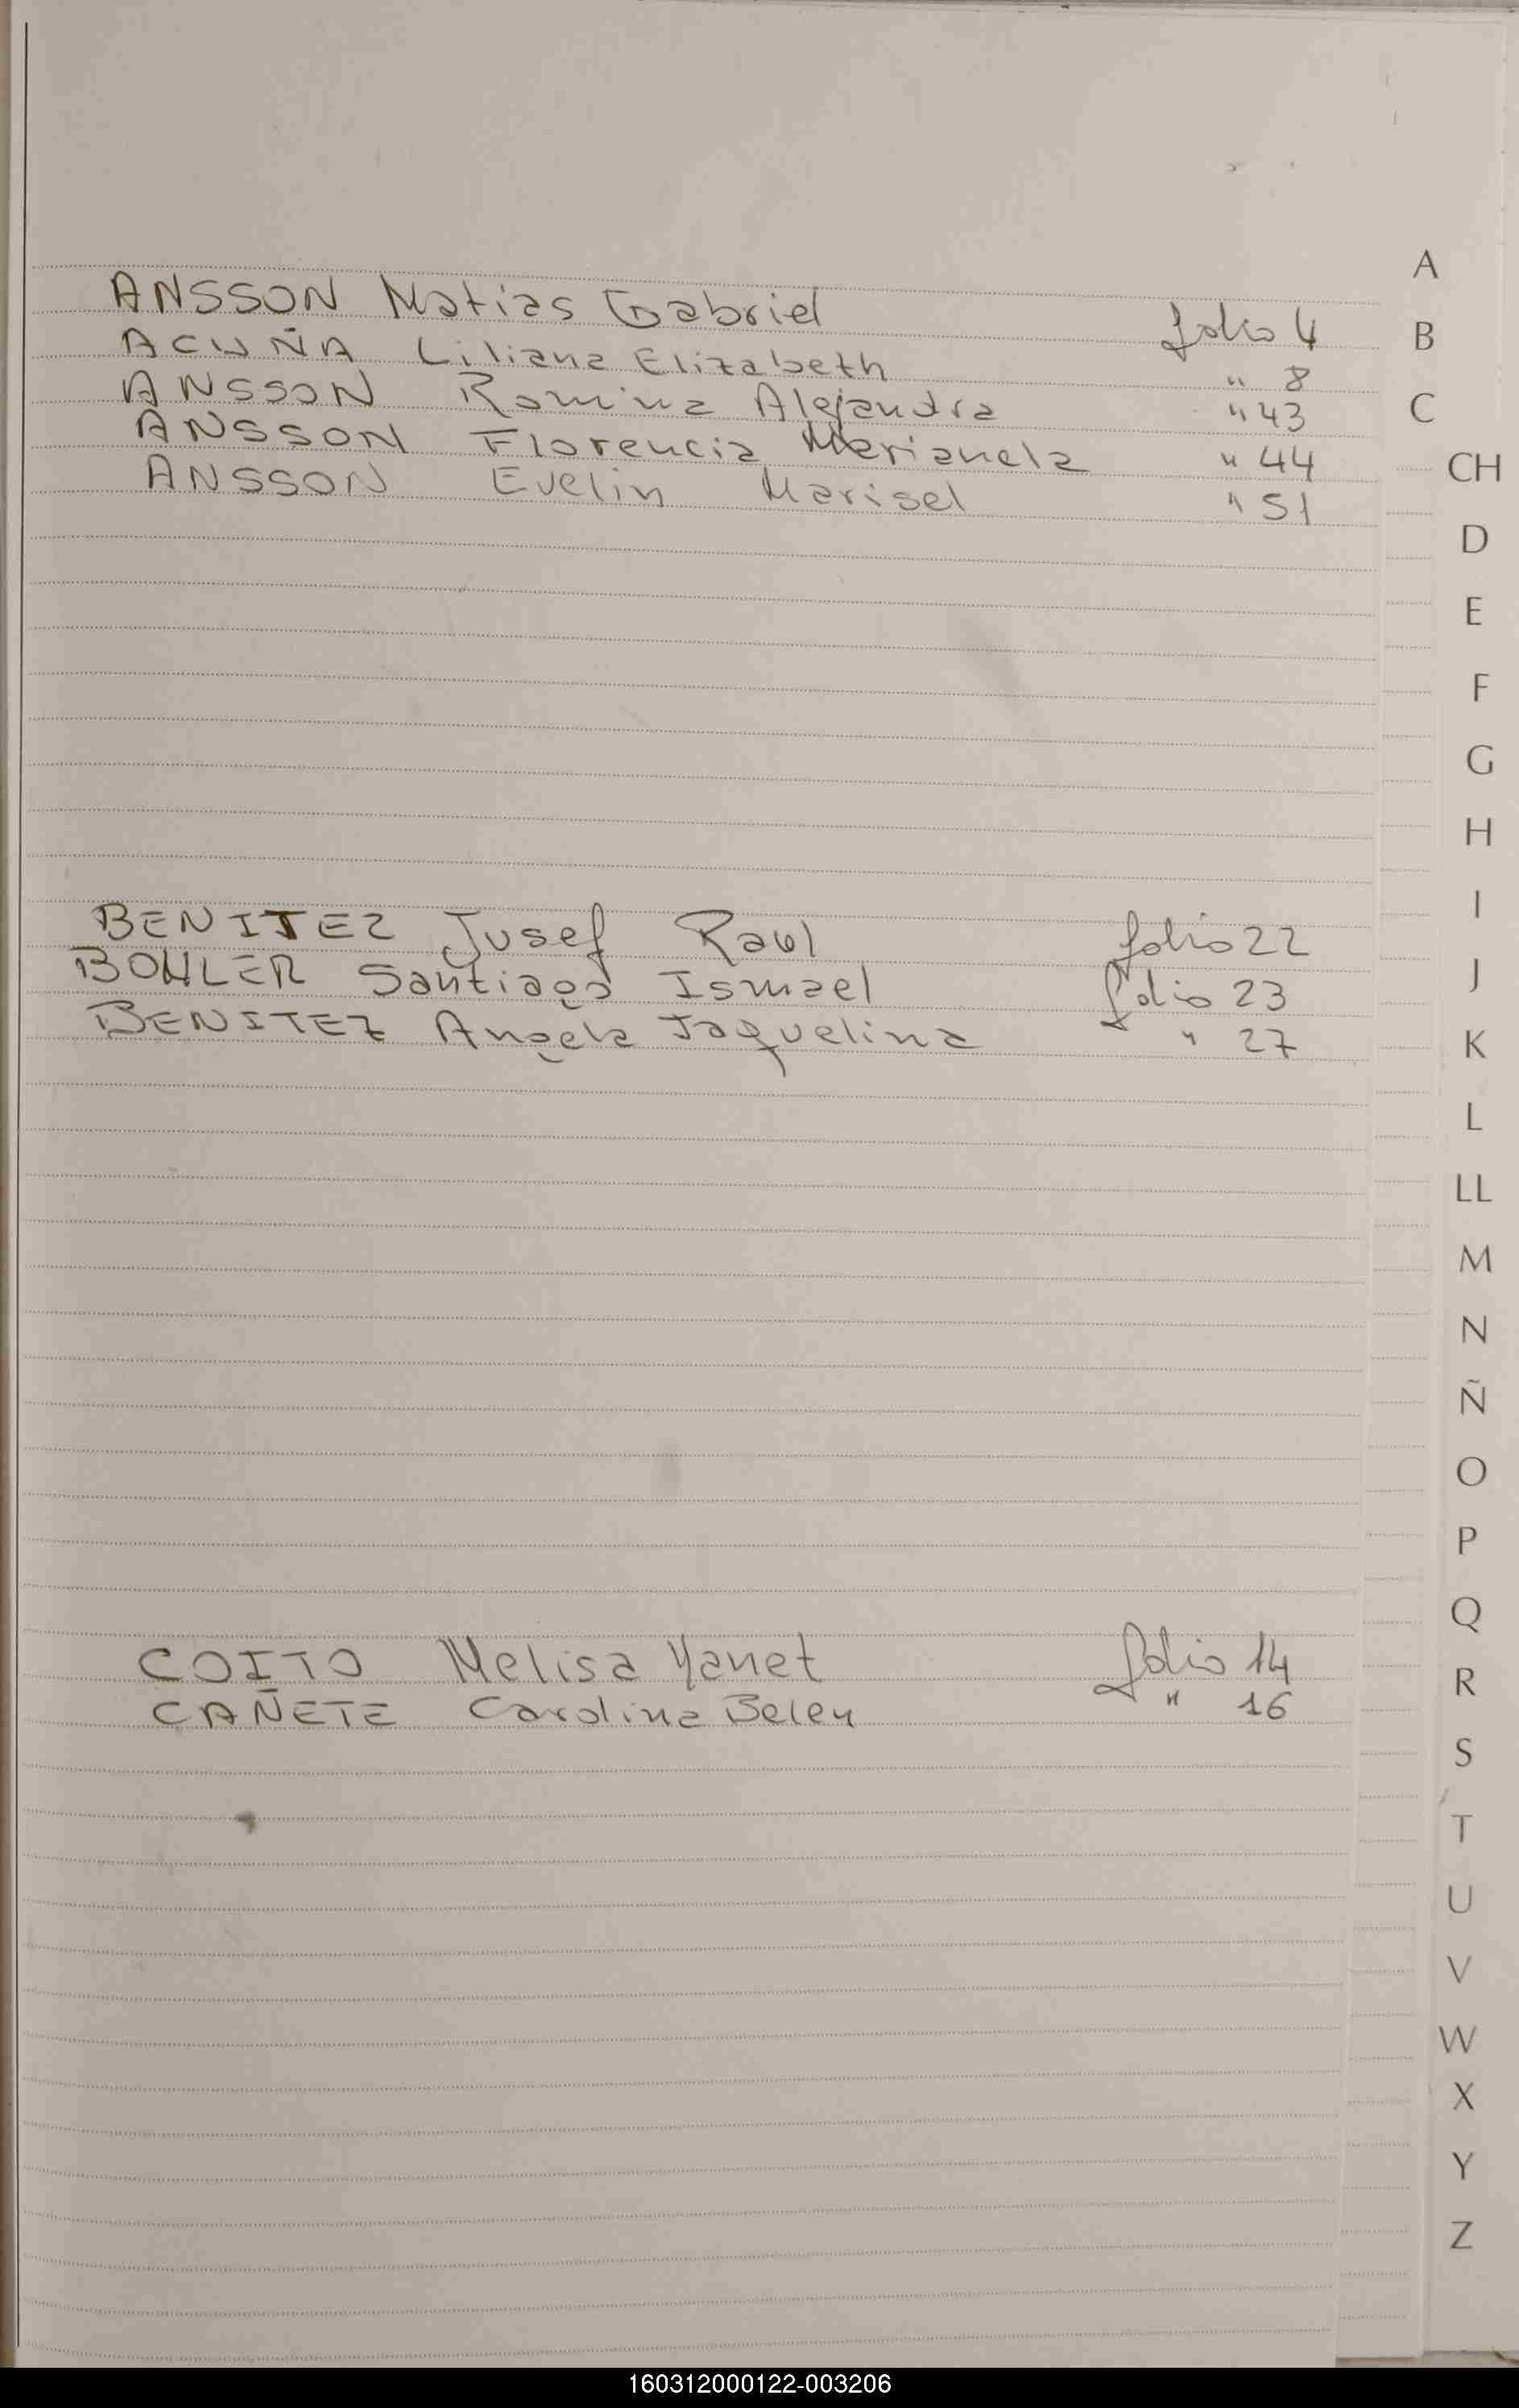 ANSSON Matias Gabriel folio 4
ACUÑA Liliana Elizabeth " 8
ANSSON Romina Alejandra " 43
ANSSON Florencia Marianela " 44
ANSSON Evelin Marisel " 51
BENITEZ Jusef Raul folio 22
BOHLER Santiago Ismael folio 23
BENITEZ Angela Jaquelina " 27
COITO Melisa Yanet folio 14
CAÑETE Carolina Belen " 16
A
B
C
CH
D
E
F
G
H
I
J
K
L
LL
M
N
Ñ
O
P
Q
R
S
T
U
V
W
X
Y
Z
160312000122-003206